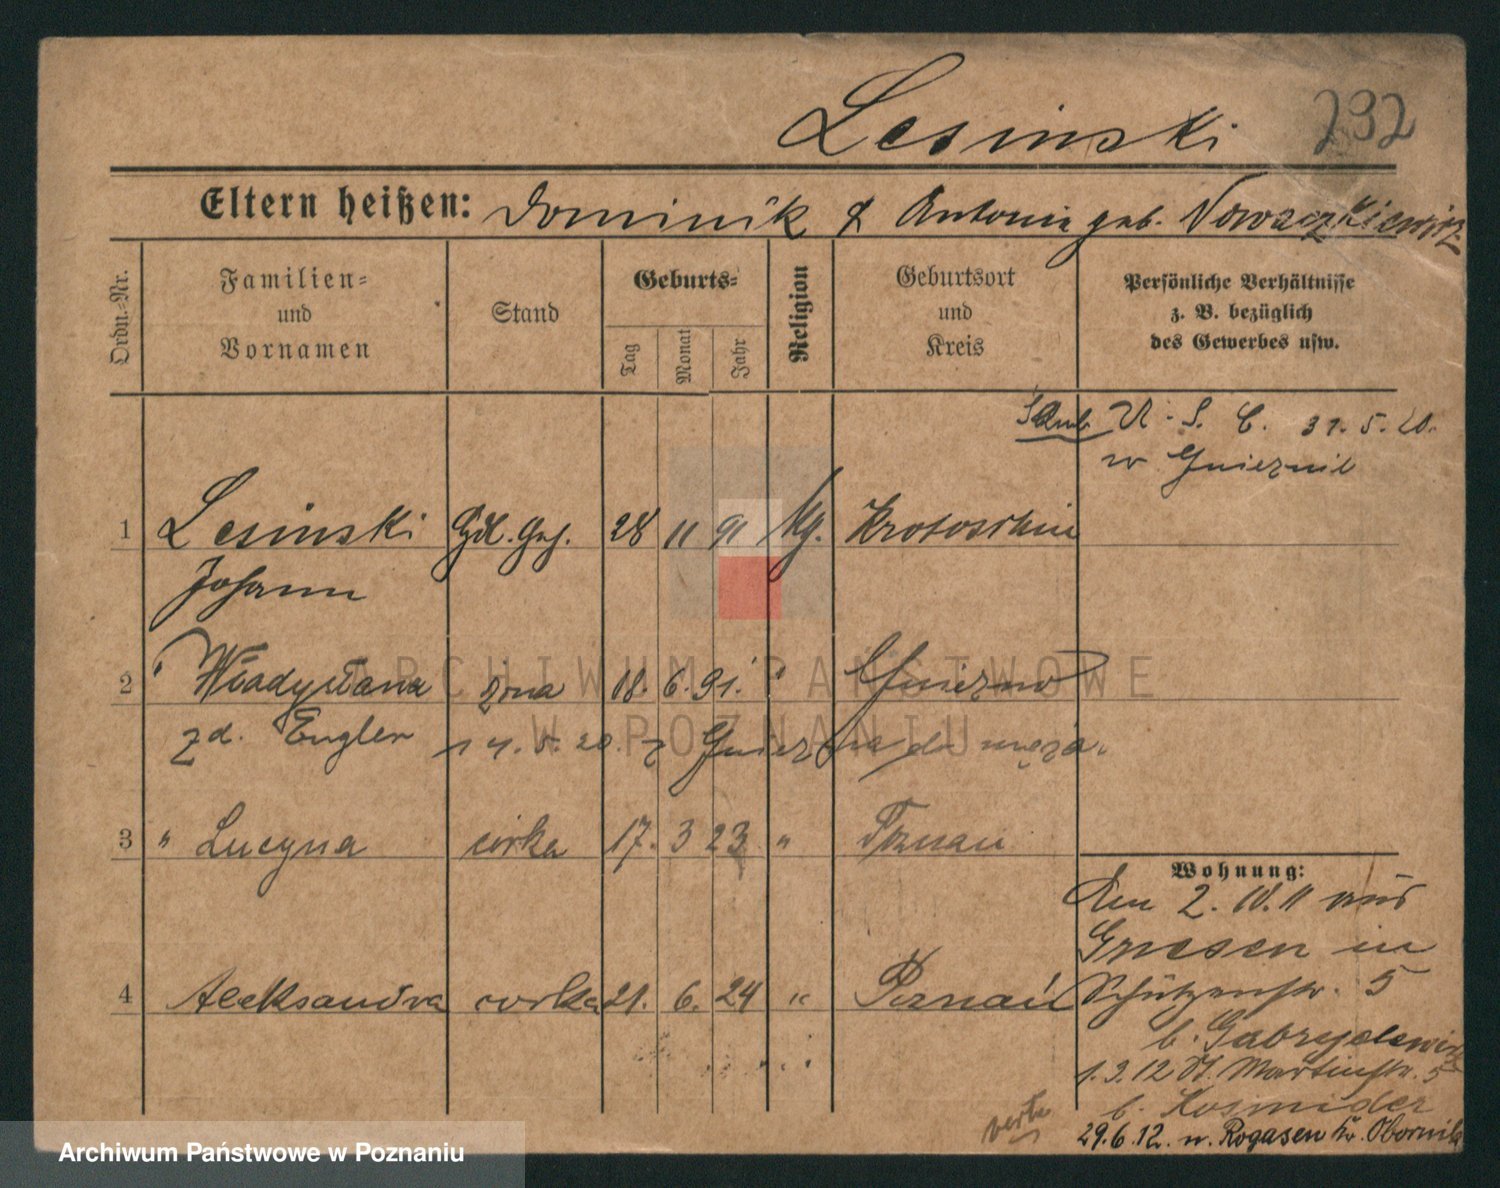 Lesinski 232
Eltern heißen: Dominik & Antonie geb. Nowaczkiewicz
Ordn.-Nr.
Familien-
und
Vornamen
Stand
Geburts-
Tag
Monat
Jahr
Religion
Geburtsort
und
Kreis
Persönliche Verhältnisse
z. B. bezüglich
des Gewerbes usw.
U. S. C. 31.5.20.
w Gnieznie
1 Lesinski Hdl. Geh. 28 11 91 kg. Krotoschin
Johann
2 " Władysława żona 18. 6. 91. " Gniezno
zd. Engler 14.5.20. z Gniezna do męża.
3 " Lucyna córka 17. 3 23 " Poznań
Wohnung:
Den 2.10.11 aus
Gnesen in
4 Aleksandra córka 21. 6. 24 " Poznań Schützenstr. 5
b. Gabryelewicz
1.3.12 St. Martinstr. 5
b. Kosmider
verte
29.6.12. n. Rogasen Kr. Obornik
ARCHIWUM PAŃSTWOWE
W POZNANIU
Archiwum Państwowe w Poznaniu